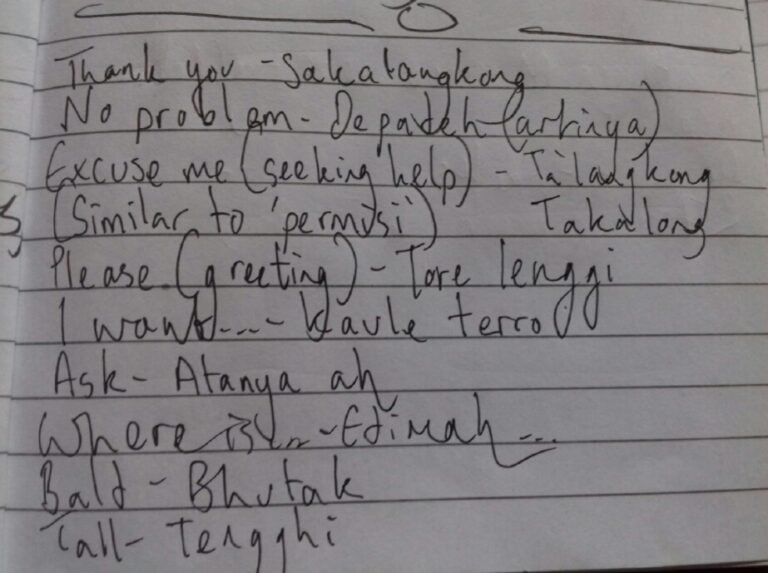 Thank you - Sakalangkong
No problem - Depadeh (artinya)
Excuse me (seeking help) - Ta'langkong
(Similar to 'permisi') Takalong
Please (greeting) - Tore lenggi
I want... - Kaule terro
Ask - Atanya ah
Where is ... - Edimah ...
Bald - Bhutak
Tall - Tengghi